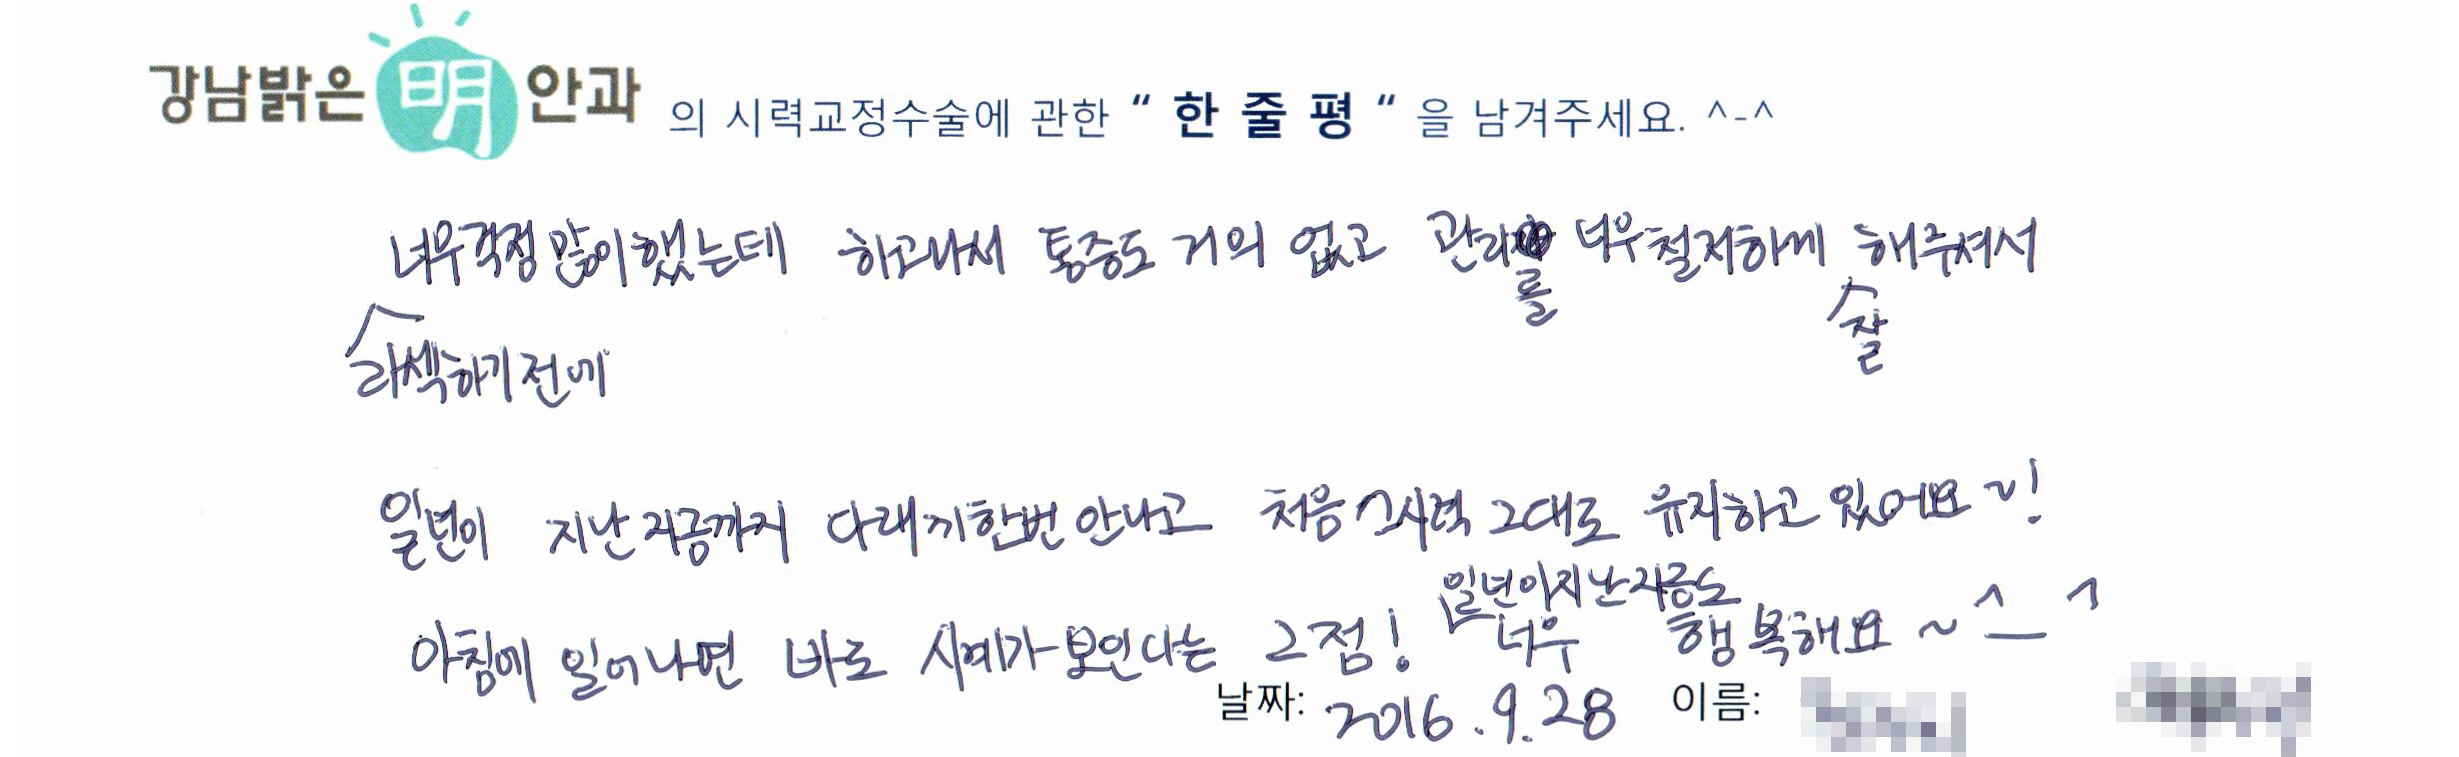 강남밝은 明 안과 의 시력교정수술에 관한 " 한 줄 평 " 을 남겨주세요. ^-^
너무걱정많이했는데 하고나서 통증도 거의 없고 관리를 너무철저하게 잘 해주셔서
라섹하기전에
일년이 지난지금까지 다래끼한번안나고 처음 시력 그대로 유지하고 있어요~!
일년이지난지금도
아침에 일어나면 바로 시계가보인다는 그점! 너무 행복해요~^_^
날짜: 2016.9.28 이름: